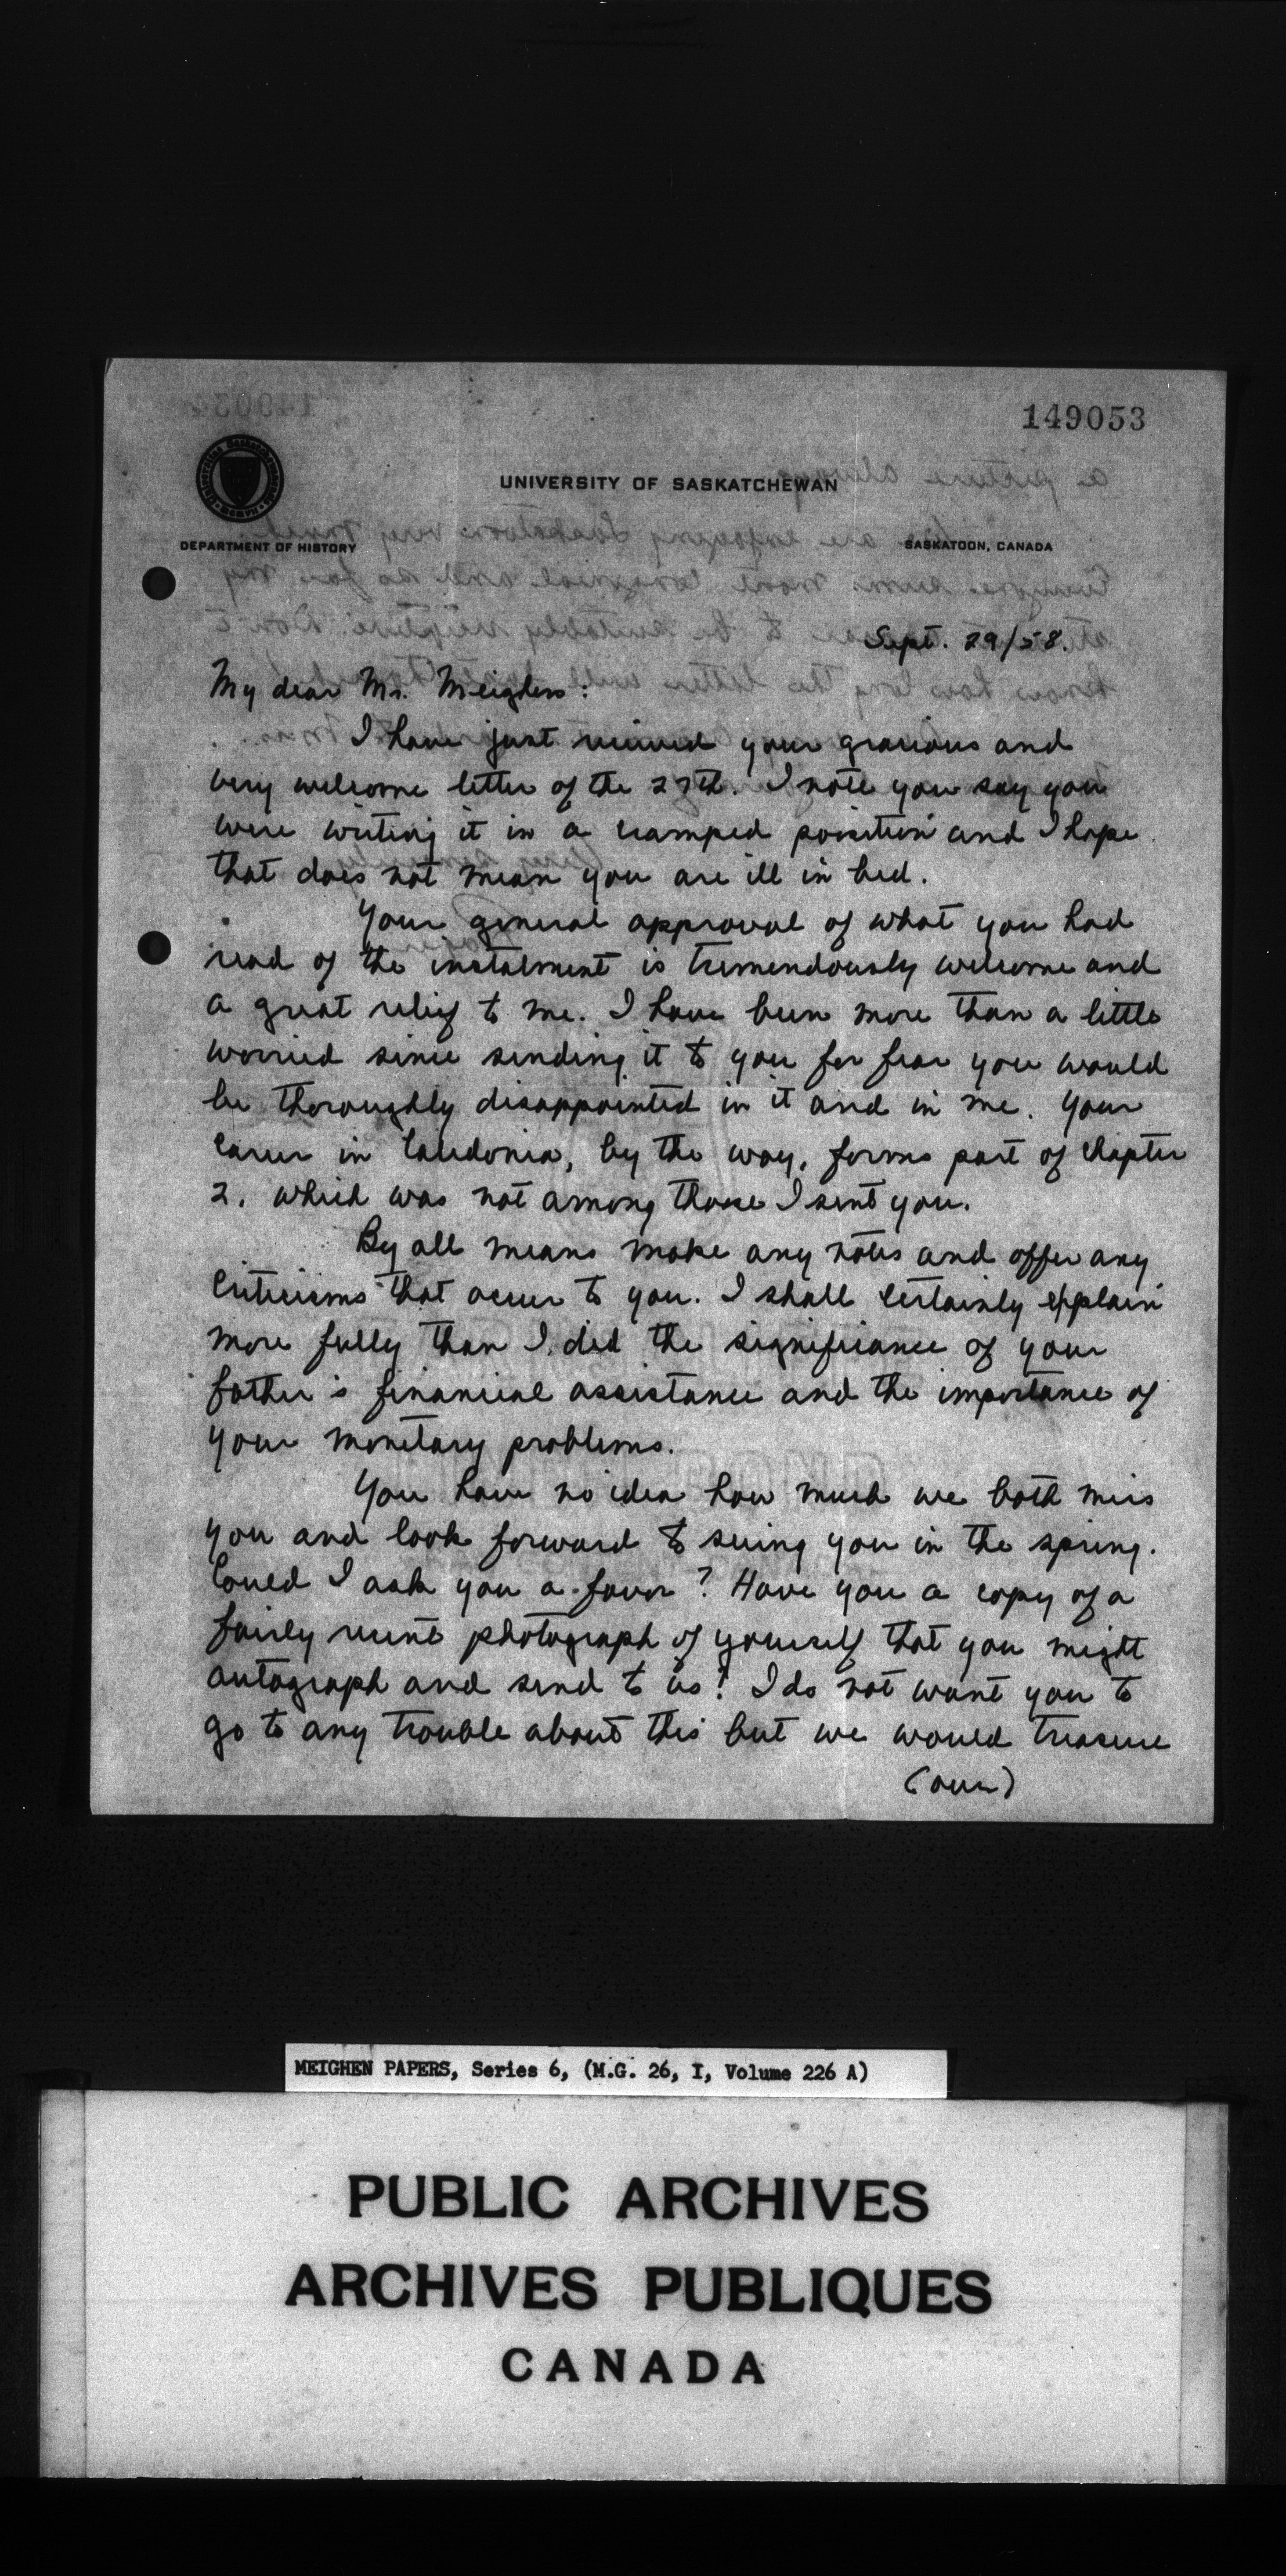 149053
UNIVERSITY OF SASKATCHEWAN
DEPARTMENT OF HISTORY
SASKATOON, CANADA
Sept. 29/58.
My dear Mr. Meighen:
I have just received your gracious and
very welcome letter of the 27th. I note you say you
were writing it in a cramped position and I hope
that does not mean you are ill in bed.
Your general approval of what you had
read of the instalment is tremendously welcome and
a great relief to me. I have been more than a little
worried since sending it to you for fear you would
be thoroughly disappointed in it and in me. Your
career in Caledonia, by the way, forms part of Chapter
2, which was not among those I sent you.
By all means make any notes and offer any
criticisms that occur to you. I shall certainly explain
more fully than I did the significance of your
father's financial assistance and the importance of
your monetary problems.
You have no idea how much we both miss
you and look forward to seeing you in the spring.
Could I ask you a favor? Have you a copy of a
fairly recent photograph of yourself that you might
autograph and send to us? I do not want you to
go to any trouble about this but we would treasure
(over)
MEIGHEN PAPERS, Series 6, (M.G. 26, I, Volume 226 A)
PUBLIC ARCHIVES
ARCHIVES PUBLIQUES
CANADA